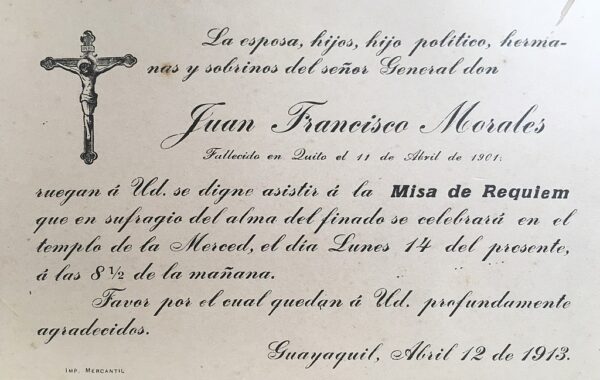 La esposa, hijos, hijo político, herma-
nas y sobrinos del señor General don
Juan Francisco Morales
Fallecido en Quito el 11 de Abril de 1901.
ruegan á Ud. se digne asistir á la Misa de Requiem
que en sufragio del alma del finado se celebrará en el
templo de la Merced, el día Lunes 14 del presente,
á las 8 ½ de la mañana.
Favor por el cual quedan á Ud. profundamente
agradecidos.
Guayaquil, Abril 12 de 1913.
IMP. MERCANTIL